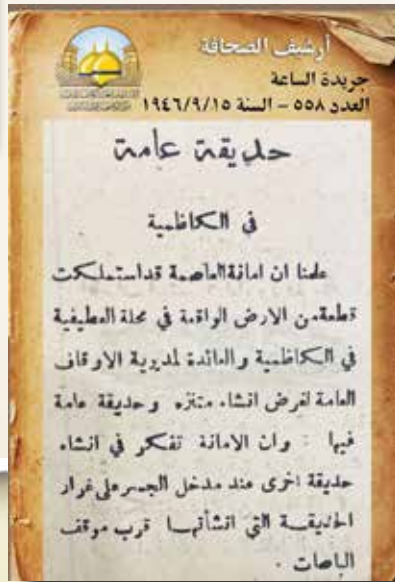 أرشيف الصحافة
جريدة الساعة
العدد ٥٥٨ – السنة ١٩٤٦/٩/١٥
حديقة عامة
في الكاظمية
علمنا ان امانة العاصمة قد استملكت
قطعة من الارض الواقعة في محلة العطيفية
في الكاظمية والعائدة لمديرية الاوقاف
العامة لغرض انشاء متنزه وحديقة عامة
فيها : وان الامانة تفكر في انشاء
حديقة اخرى عند مدخل الجسر على غرار
الحديقة التي انشأتها قرب موقف
الباصات .